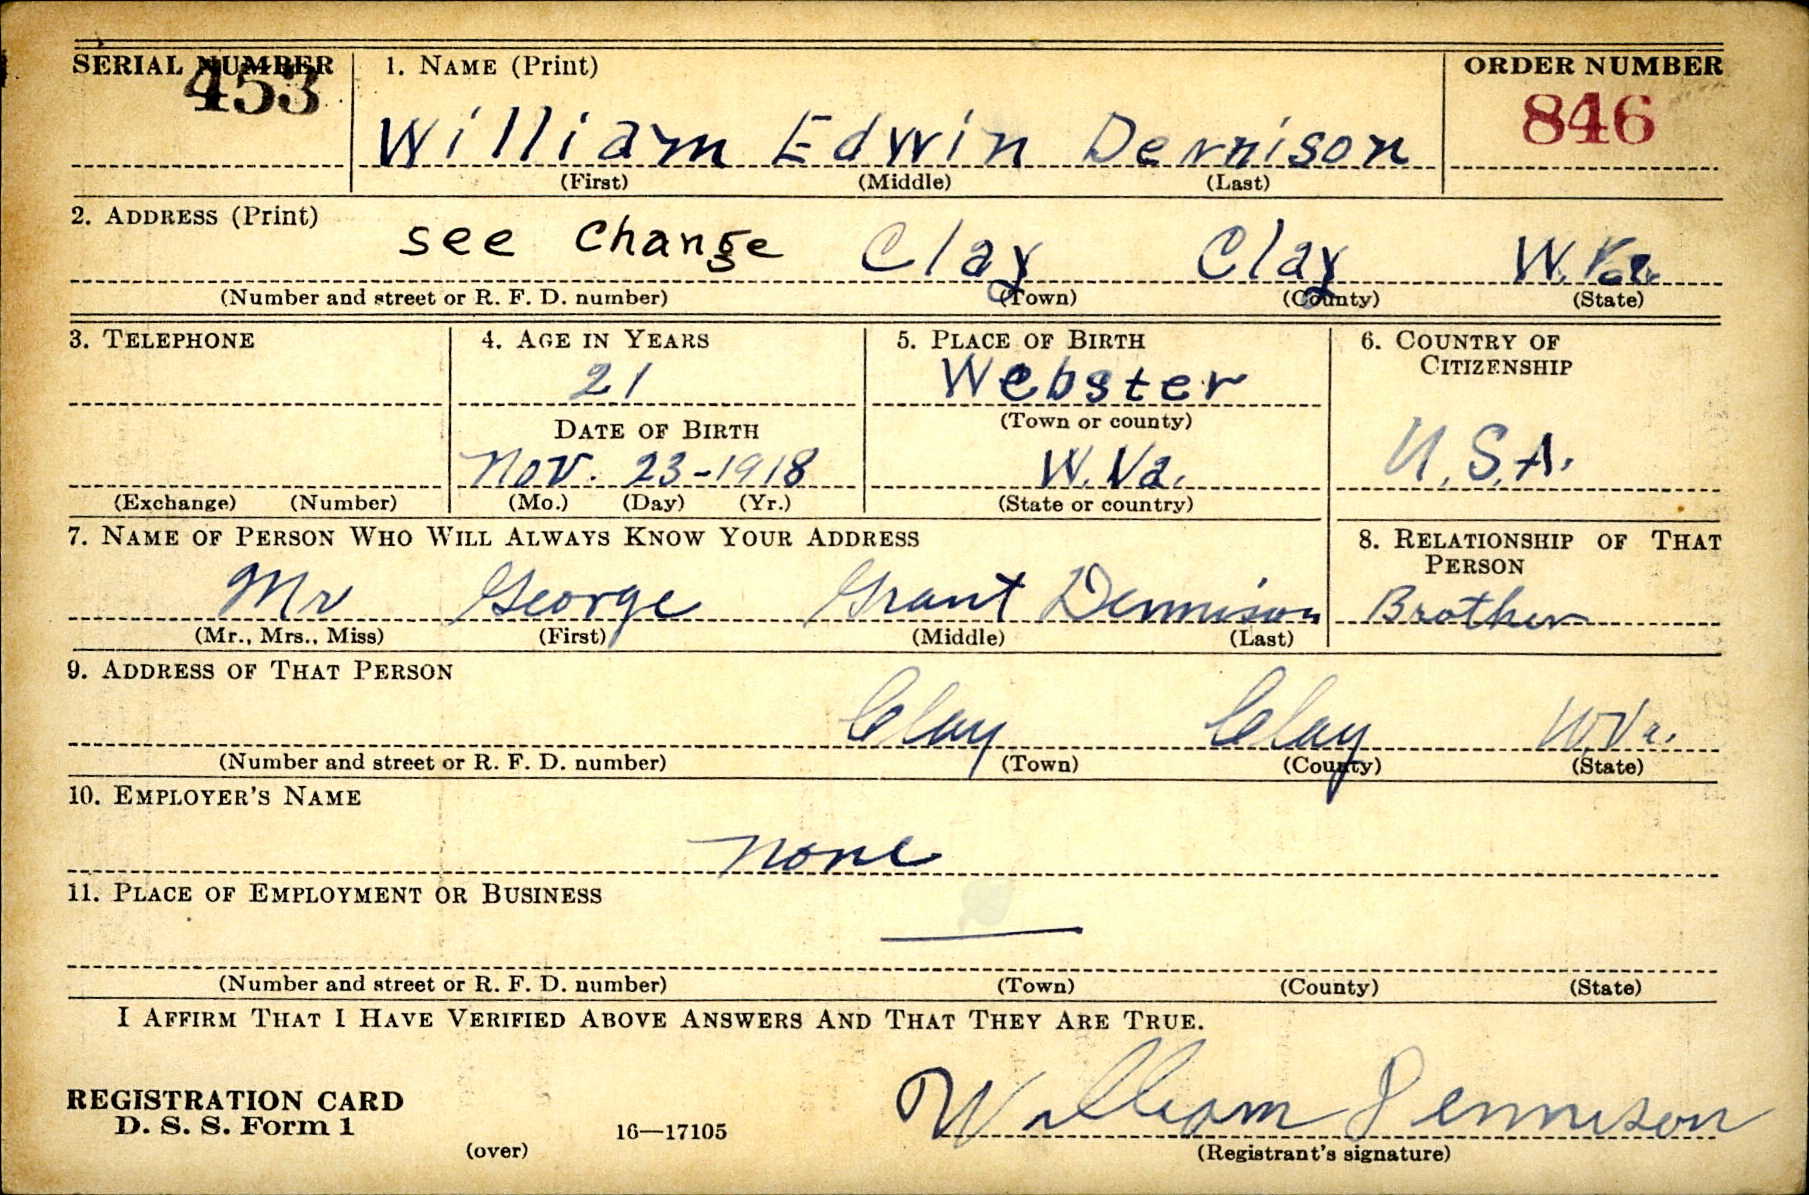 SERIAL NUMBER 1. NAME (Print) ORDER NUMBER
453 William Edwin Dennison 846
(First) (Middle) (Last)
2. ADDRESS (Print)
see change Clay Clay W. Va.
(Number and street or R. F. D. number) (Town) (County) (State)
3. TELEPHONE 4. AGE IN YEARS 5. PLACE OF BIRTH 6. COUNTRY OF CITIZENSHIP
21 Webster
DATE OF BIRTH (Town or county)
Nov. 23-1918 W. Va. U.S.A.
(Exchange) (Number) (Mo.) (Day) (Yr.) (State or country)
7. NAME OF PERSON WHO WILL ALWAYS KNOW YOUR ADDRESS 8. RELATIONSHIP OF THAT PERSON
Mr George Grant Dennison Brother
(Mr., Mrs., Miss) (First) (Middle) (Last)
9. ADDRESS OF THAT PERSON
Clay Clay W. Va.
(Number and street or R. F. D. number) (Town) (County) (State)
10. EMPLOYER'S NAME
None
11. PLACE OF EMPLOYMENT OR BUSINESS
(Number and street or R. F. D. number) (Town) (County) (State)
I AFFIRM THAT I HAVE VERIFIED ABOVE ANSWERS AND THAT THEY ARE TRUE.
REGISTRATION CARD
D. S. S. Form 1 16—17105 William Dennison
(over) (Registrant's signature)